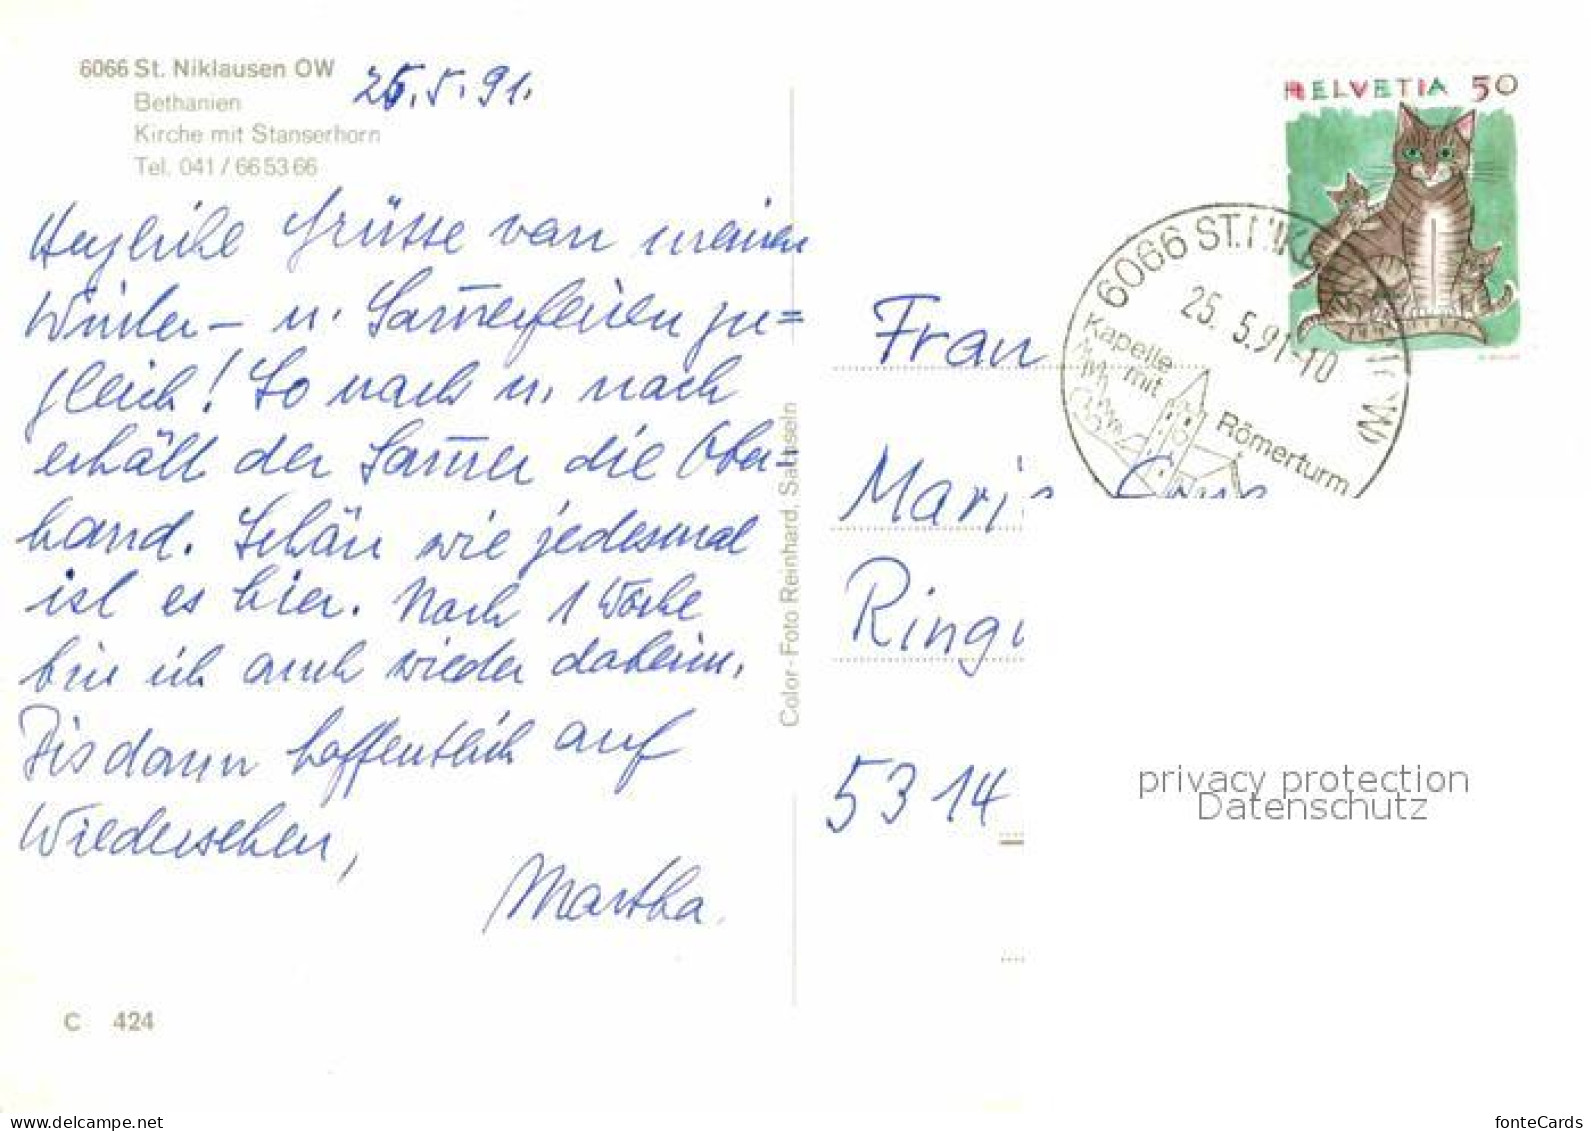 6066 St. Niklausen OW
Bethanien
Kirche mit Stanserhorn
Tel. 041 / 66 53 66
25.5.91.
Herzliche Grüsse von meinen
Winter- u. Sommerferien zu=
gleich! So nach u. nach
erhält der Sommer die Ober-
hand. Schön wie jedesmal
ist es hier. Nach 1 Woche
bin ich auch wieder daheim.
Bis dann hoffentlich auf
Wiedersehen,
Martha.
C 424
Color-Foto Reinhard, Sachseln
HELVETIA 50
6066 ST.NIK
25. 5.91-10
Kapelle
mit
Römerturm
Frau
Mari
Ring
5314
privacy protection
Datenschutz
fonteCards